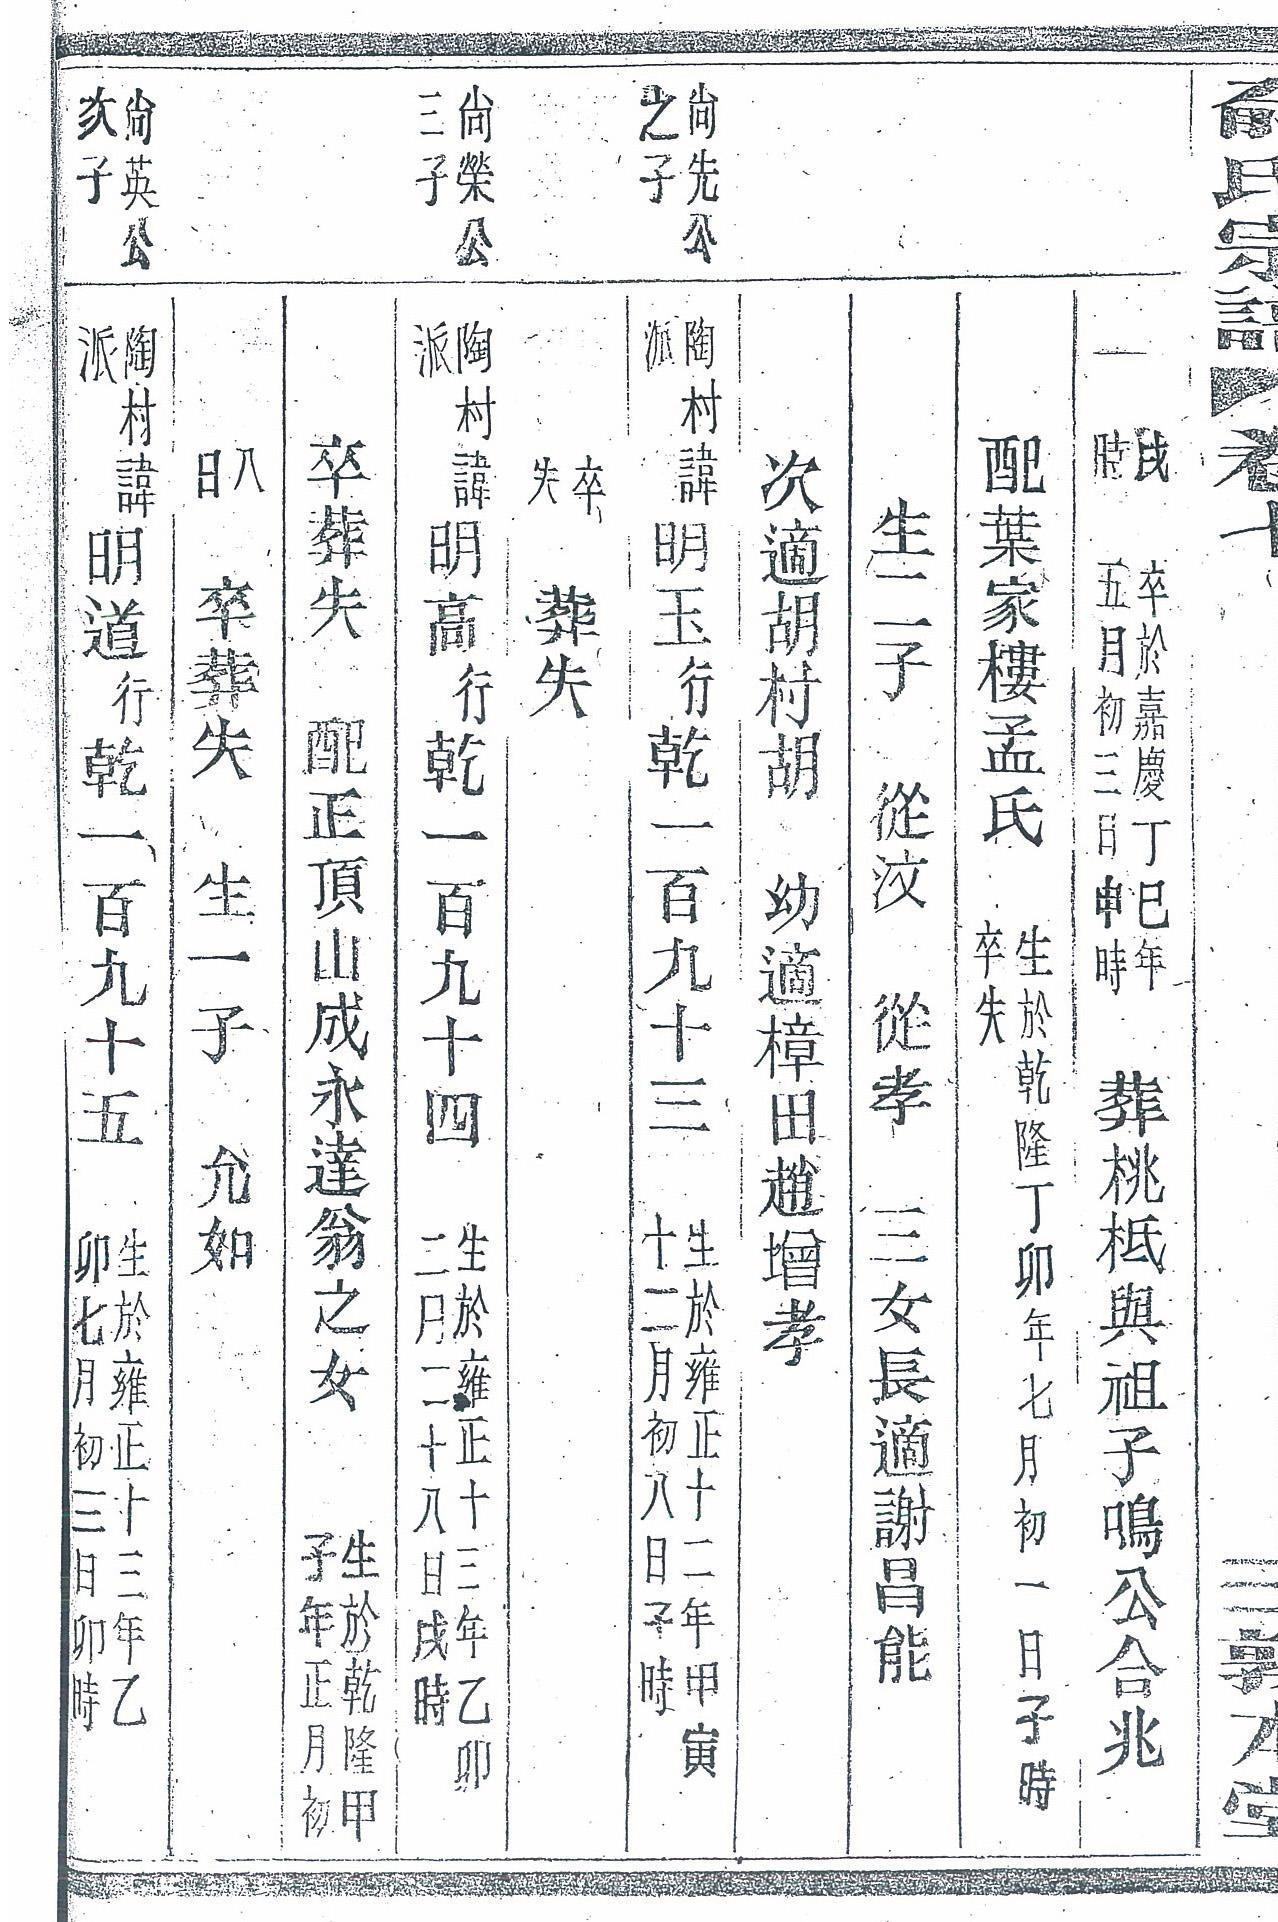 氏宗譜 卷十 三 敦本堂
戌時 卒於嘉慶丁巳年五月初三日申時 葬桃柢與祖子鳴公合兆
配葉家樓孟氏 生於乾隆丁卯年七月初一日子時卒失
生二子 從汶 從孝 三女長適謝昌能
次適胡村胡 幼適樟田趙增孝
尚先公之子 陶村派諱明玉行乾一百九十三 生於雍正十二年甲寅十二月初八日子時
卒失 葬失
尚榮公三子 陶村派諱明高行乾一百九十四 生於雍正十三年乙卯二月二十八日戌時
卒葬失 配正頂山成永達翁之女 生於乾隆甲子年正月初
八日 卒葬失 生一子 允如
尚英公次子 陶村派諱明道行乾一百九十五 生於雍正十三年乙卯七月初三日卯時